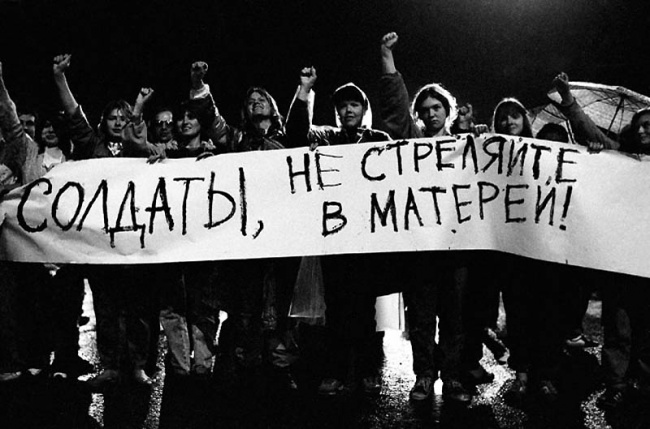 СОЛДАТЫ, НЕ СТРЕЛЯЙТЕ
В МАТЕРЕЙ!